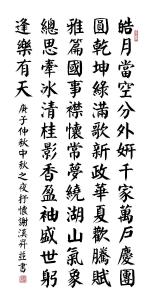 皓月當空分外妍千家萬戶慶團
圓乾坤綠滿歌新政華夏歡騰賦
雅篇國事襟懷常夢繞湖山氣象
總思牽冰清桂影香盈袖盛世躬
逢樂有天 庚子仲秋中秋之夜抒懷謝漢昇並書